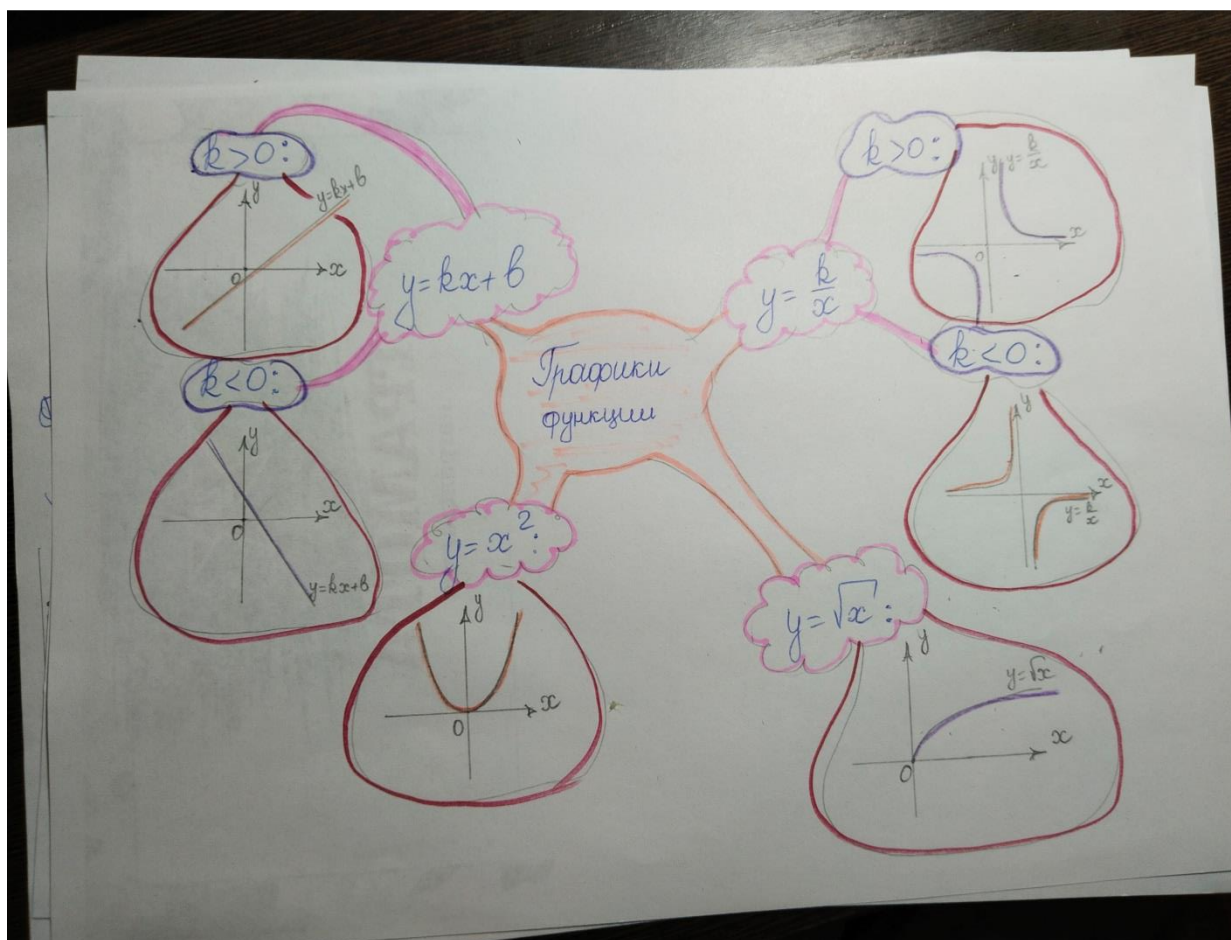 Графики
функции
y=kx+b
k>0:
y
y=kx+b
0
x
k<0:
y
x
0
y=kx+b
y=x²:
y
0
x
y=k/x
k>0:
y
y=k/x
x
0
k<0:
y
x
y=k/x
y=√x:
y
y=√x
0
x